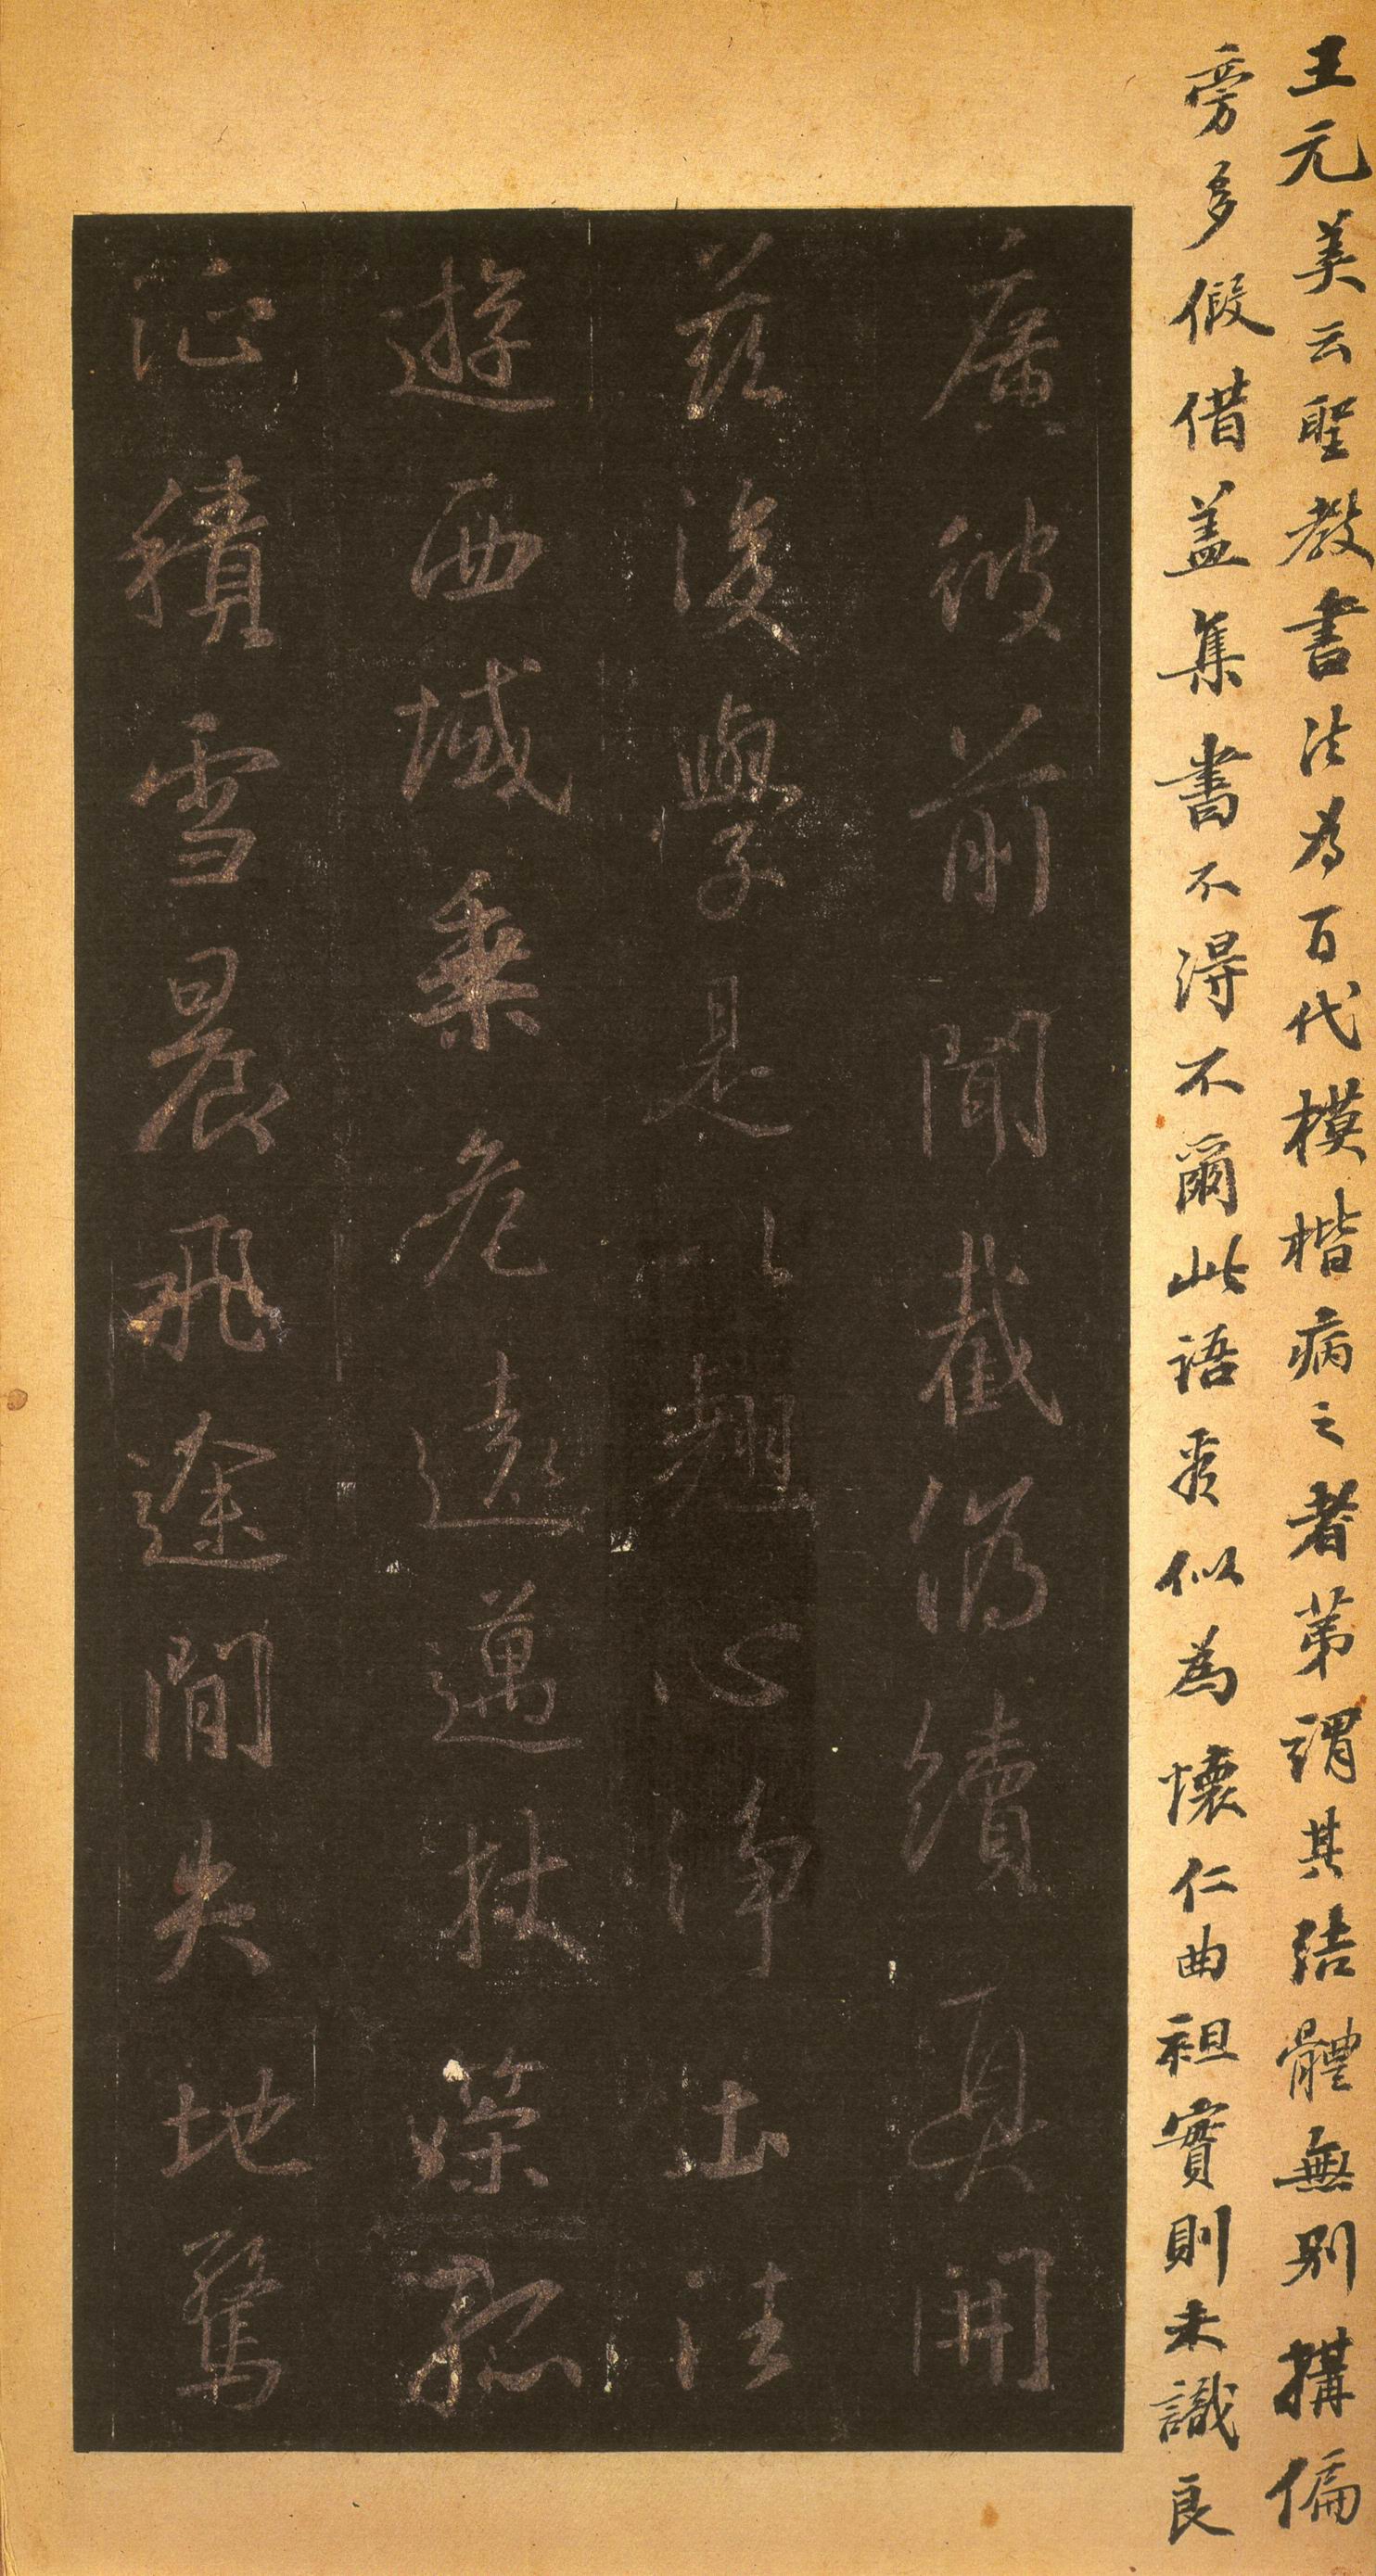 王元美云聖教書法为百代模楷病之者苐謂其结體無別搆偏
旁多假借盖集書不得不爾此語秀似為懷仁曲袒實則未識良
廣彼前聞截偽續真開
茲後學是以翹心淨土法
遊西域乘危遠邁杖策孤
征積雪晨飛途間失地驚